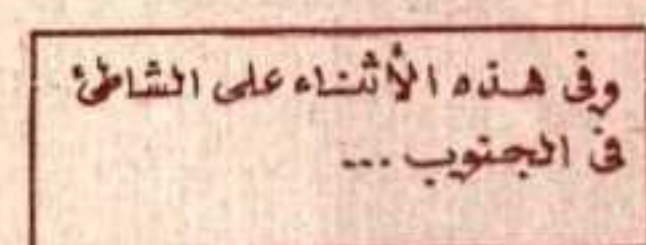 وفى هذه الأثناء على الشاطئ
فى الجنوب ...